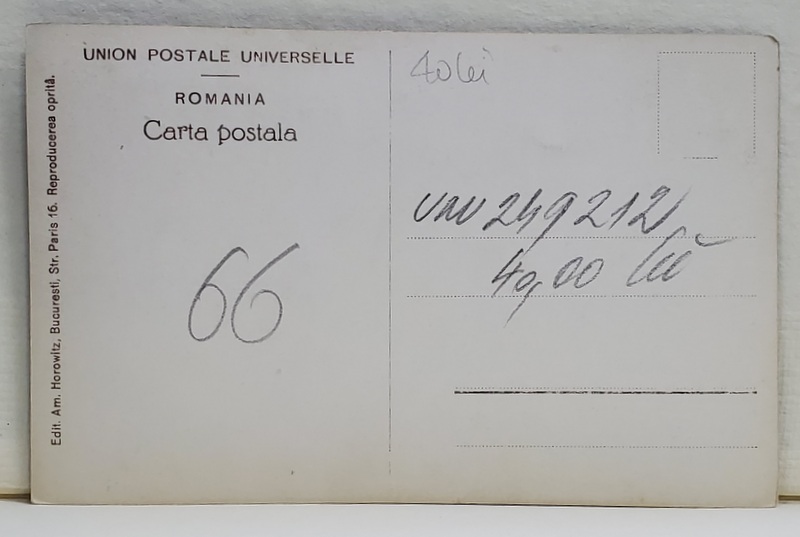 UNION POSTALE UNIVERSELLE
ROMANIA
Carta postala
Edit. Am. Horowitz, Bucuresti, Str. Paris 16. Reproducerea oprită.
66
40 lei
249212
40,00 lei